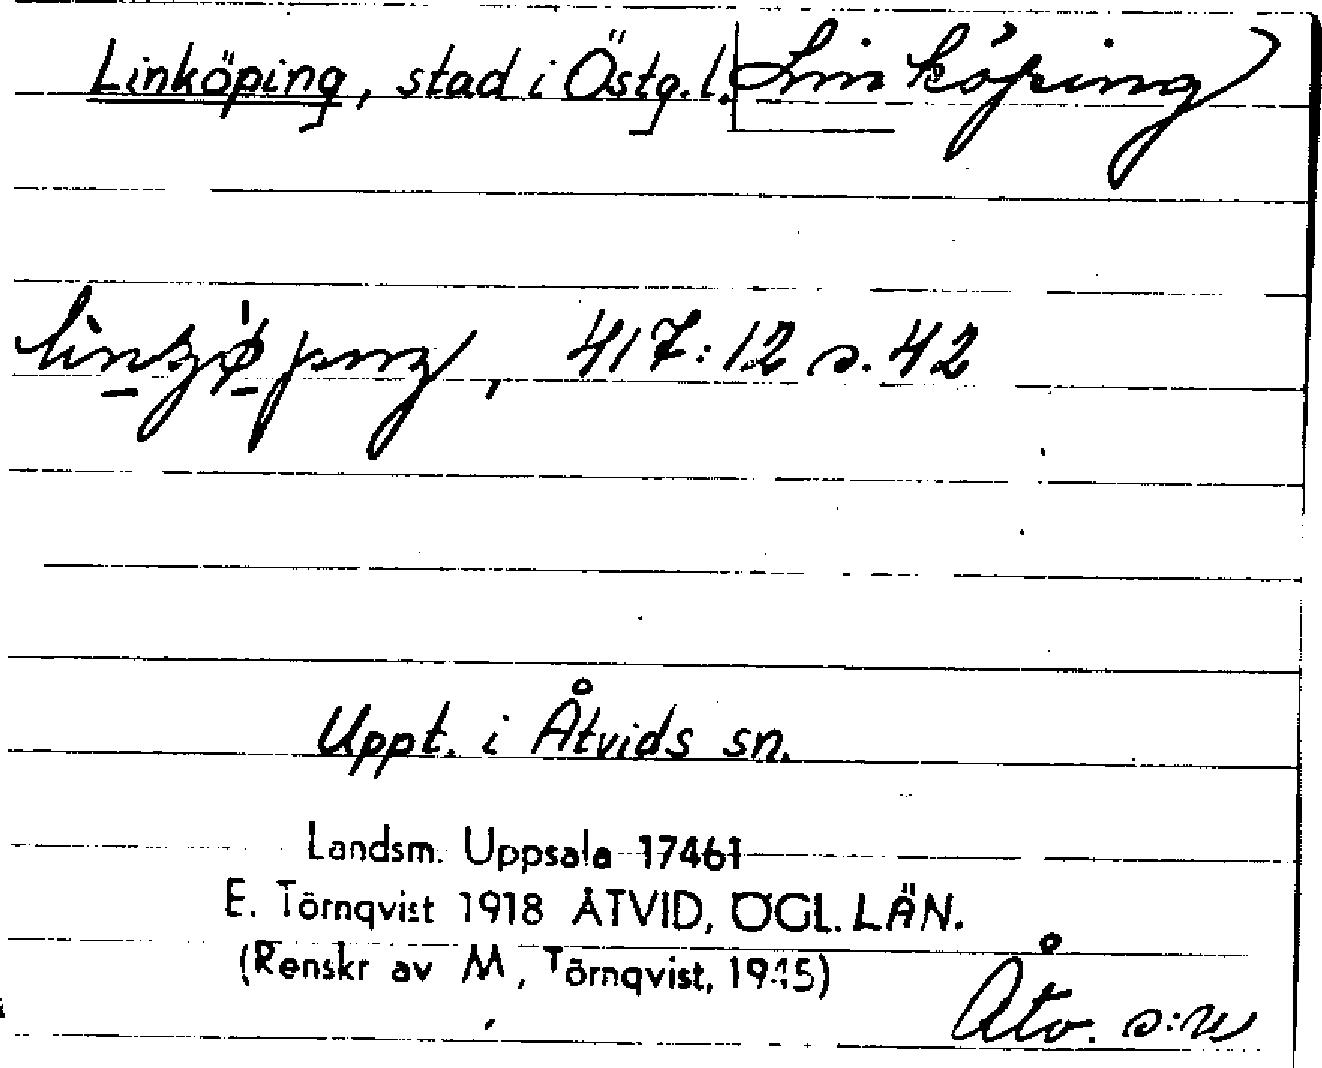 Linköping, stad i Östg.l. Linköping
417:12 s. 42
Uppt. i Åtvids sn.
Landsm. Uppsala 17461
E. Törnqvist 1918 ÅTVID, ÖGL. LÄN.
(Renskr av M, Törnqvist, 1945)
Åtv. s:n